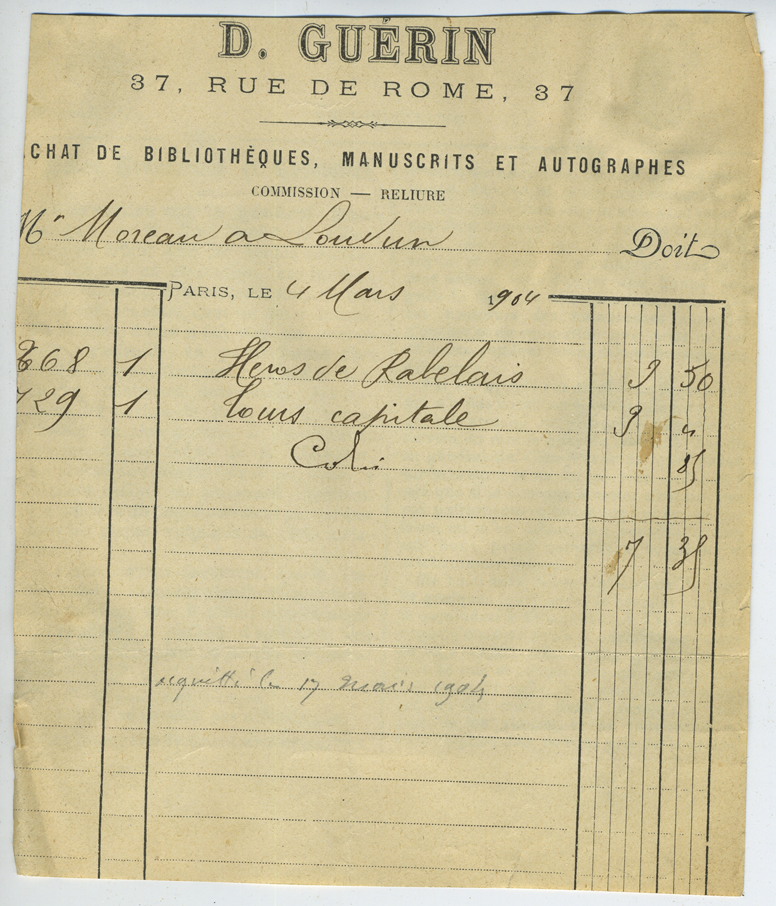 D. GUÉRIN
37, RUE DE ROME, 37
CHAT DE BIBLIOTHÈQUES, MANUSCRITS ET AUTOGRAPHES
COMMISSION — RELIURE
Mr Moreau a Loudun Doit
PARIS, LE 4 Mars 1904
268 1 Heros de Rabelais 3 50
729 1 Tours capitale 3 "
Colis 85
7 35
acquitté le 17 mars 1904